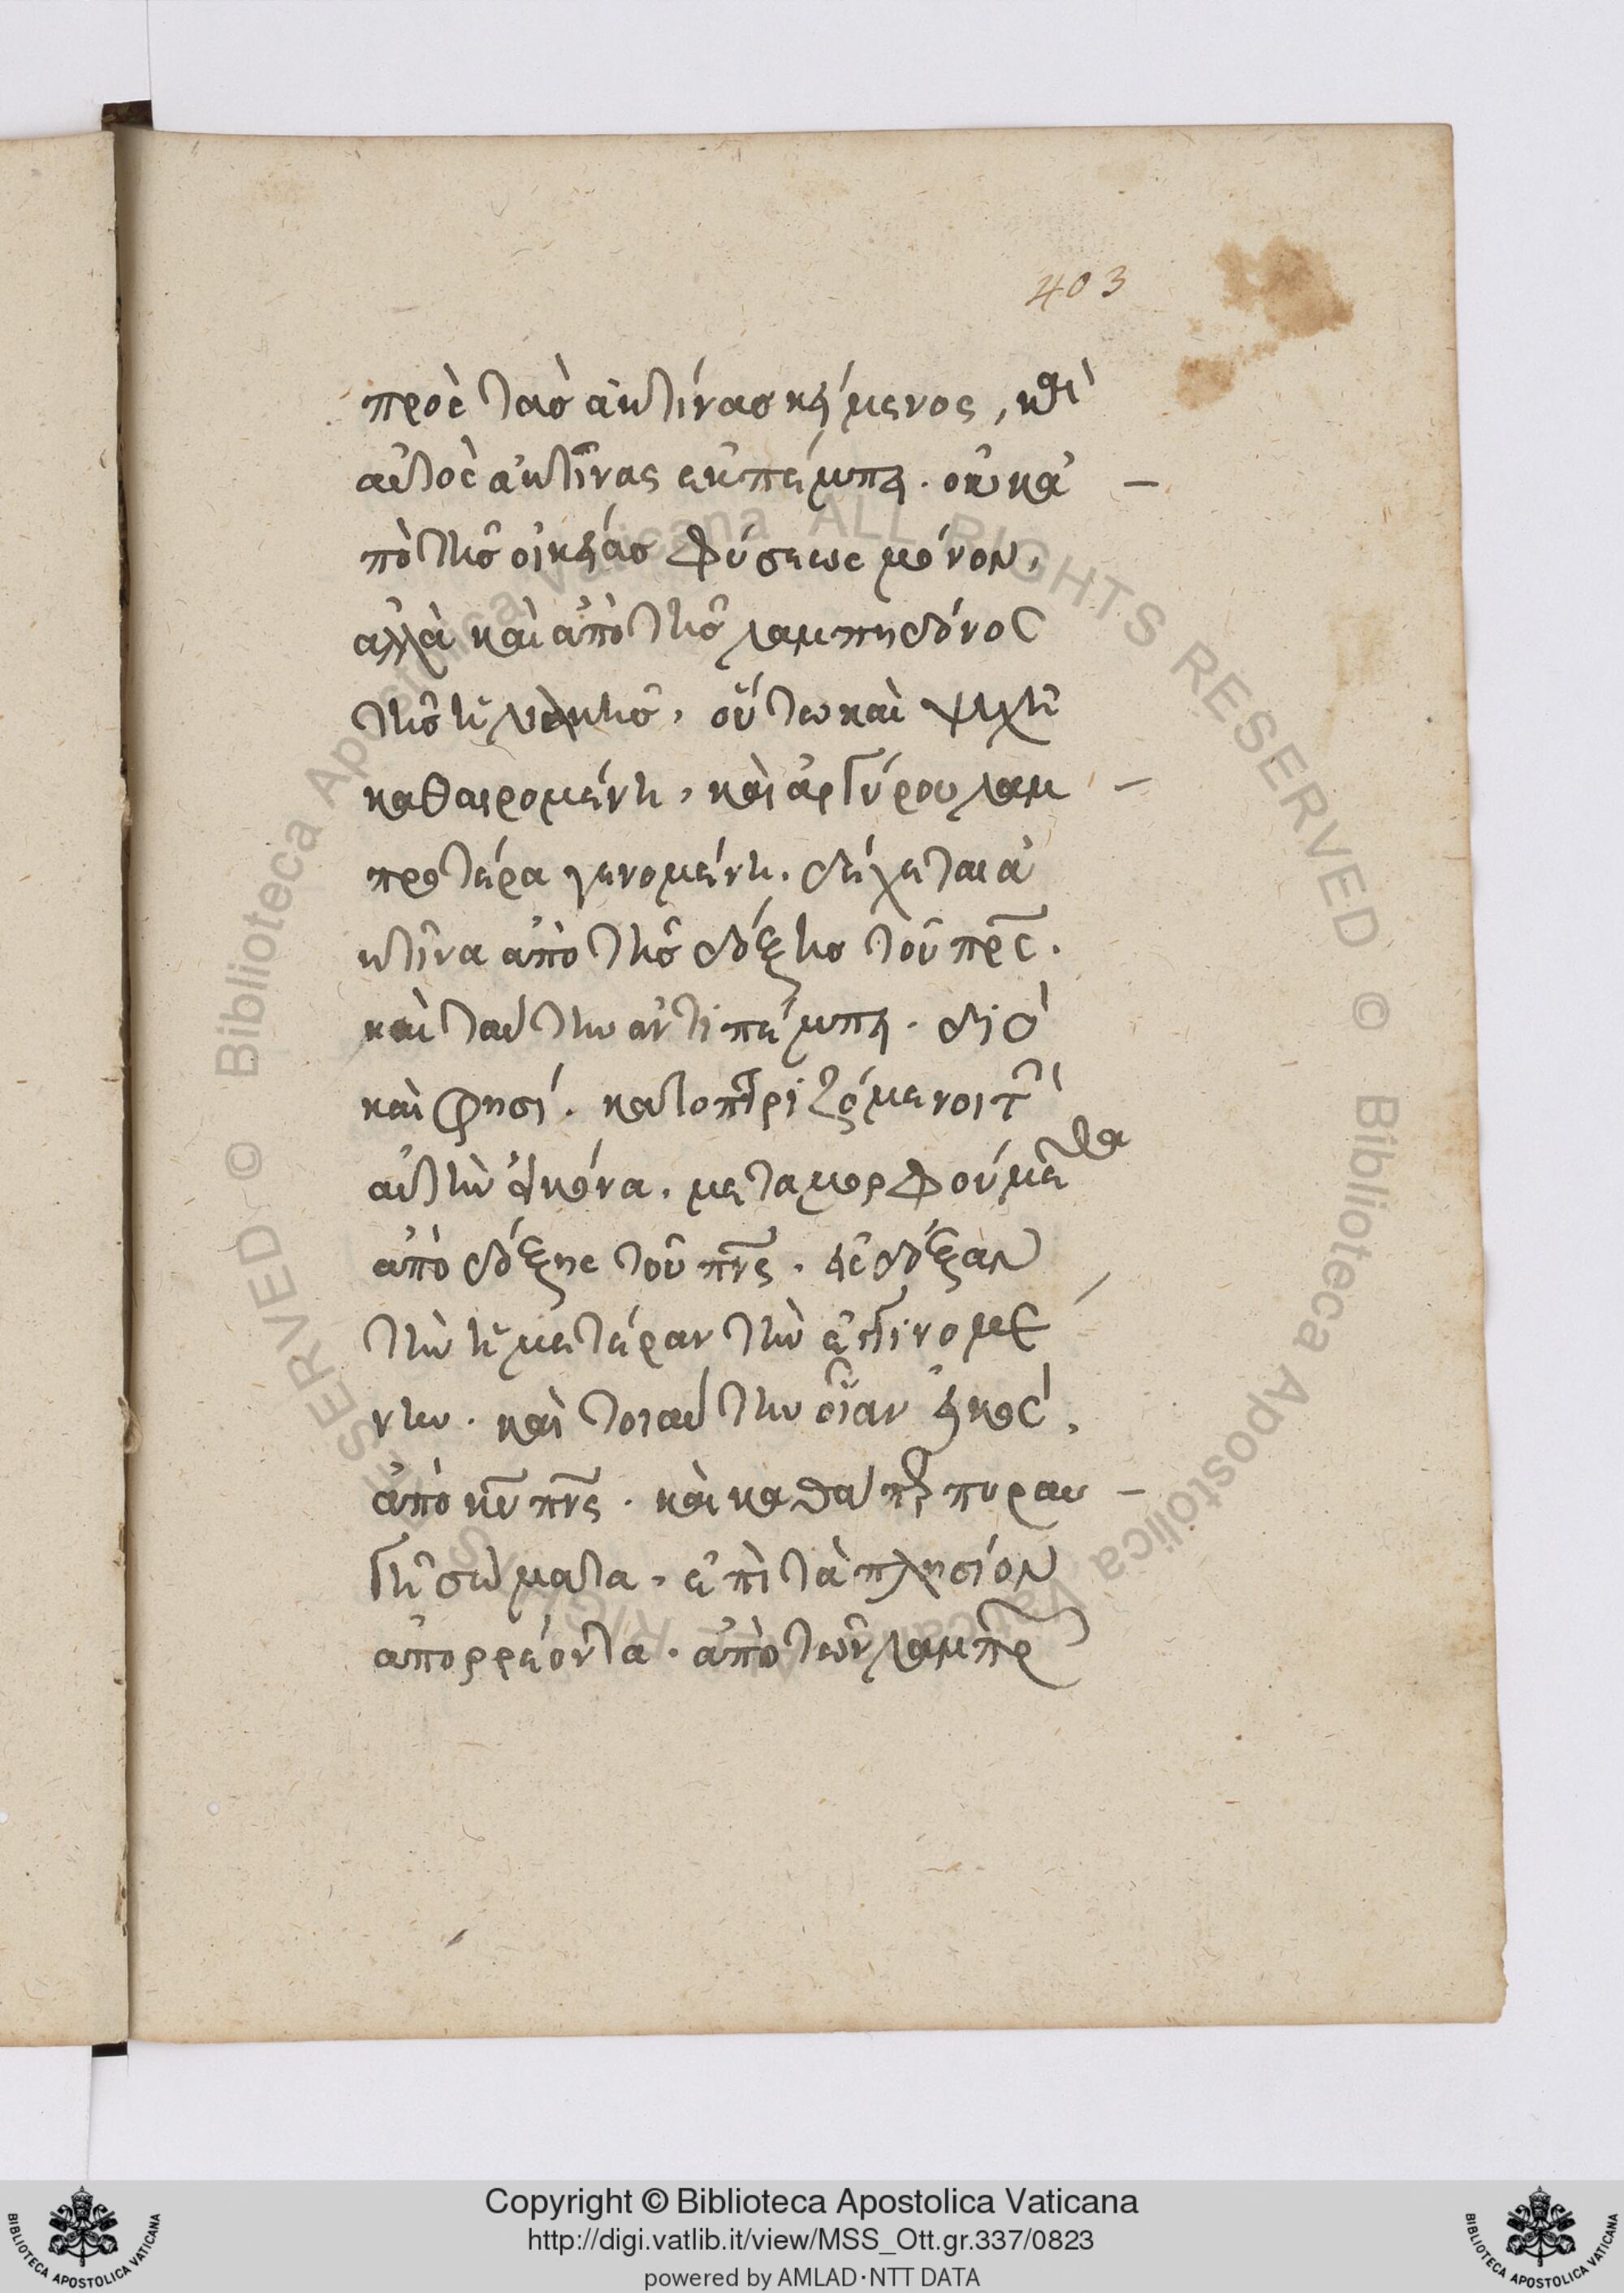 403
πρὸς τὰς ἀκτίνας κείμενος, καὶ
αὐτὸς ἀκτῖνας ἐκπέμπει. οὐκ ἀ
πὸ τῆς οἰκείας φύσεως μόνον,
ἀλλὰ καὶ ἀπὸ τῆς λαμπηδόνος
τῆς ἡλιακῆς, οὕτω καὶ ψυχὴ
καθαιρομένη, καὶ ἀργύρου λαμ
προτέρα γενομένη. δέχεται ἀ
κτῖνα ἀπὸ τῆς δόξης τοῦ πρς.
καὶ ταύτην ἀντιπέμπει. διὸ
καὶ φησί. κατοπτριζόμενοι τὴν
αὐτὴν εἰκόνα. μεταμορφούμεθα
ἀπὸ δόξης τοῦ πνς. εἰς δόξαν
τὴν ἡμετέραν τὴν ἐγγινομέ
νην. καὶ τοιαύτην οἵαν εἰκὸς,
ἀπὸ κυ πνς. καὶ καθάπερ πυραυ
γῆ σώματα, ἐπὶ τὰ πλησίον
ἀπορρέοντα. ἀπὸ τῶν λαμπρ
Copyright © Biblioteca Apostolica Vaticana
http://digi.vatlib.it/view/MSS_Ott.gr.337/0823
powered by AMLAD·NTT DATA
BIBLIOTECA APOSTOLICA VATICANA
BIBLIOTECA APOSTOLICA VATICANA
© Biblioteca Apostolica Vaticana ALL RIGHTS RESERVED
© Biblioteca Apostolica Vaticana ALL RIGHTS RESERVED